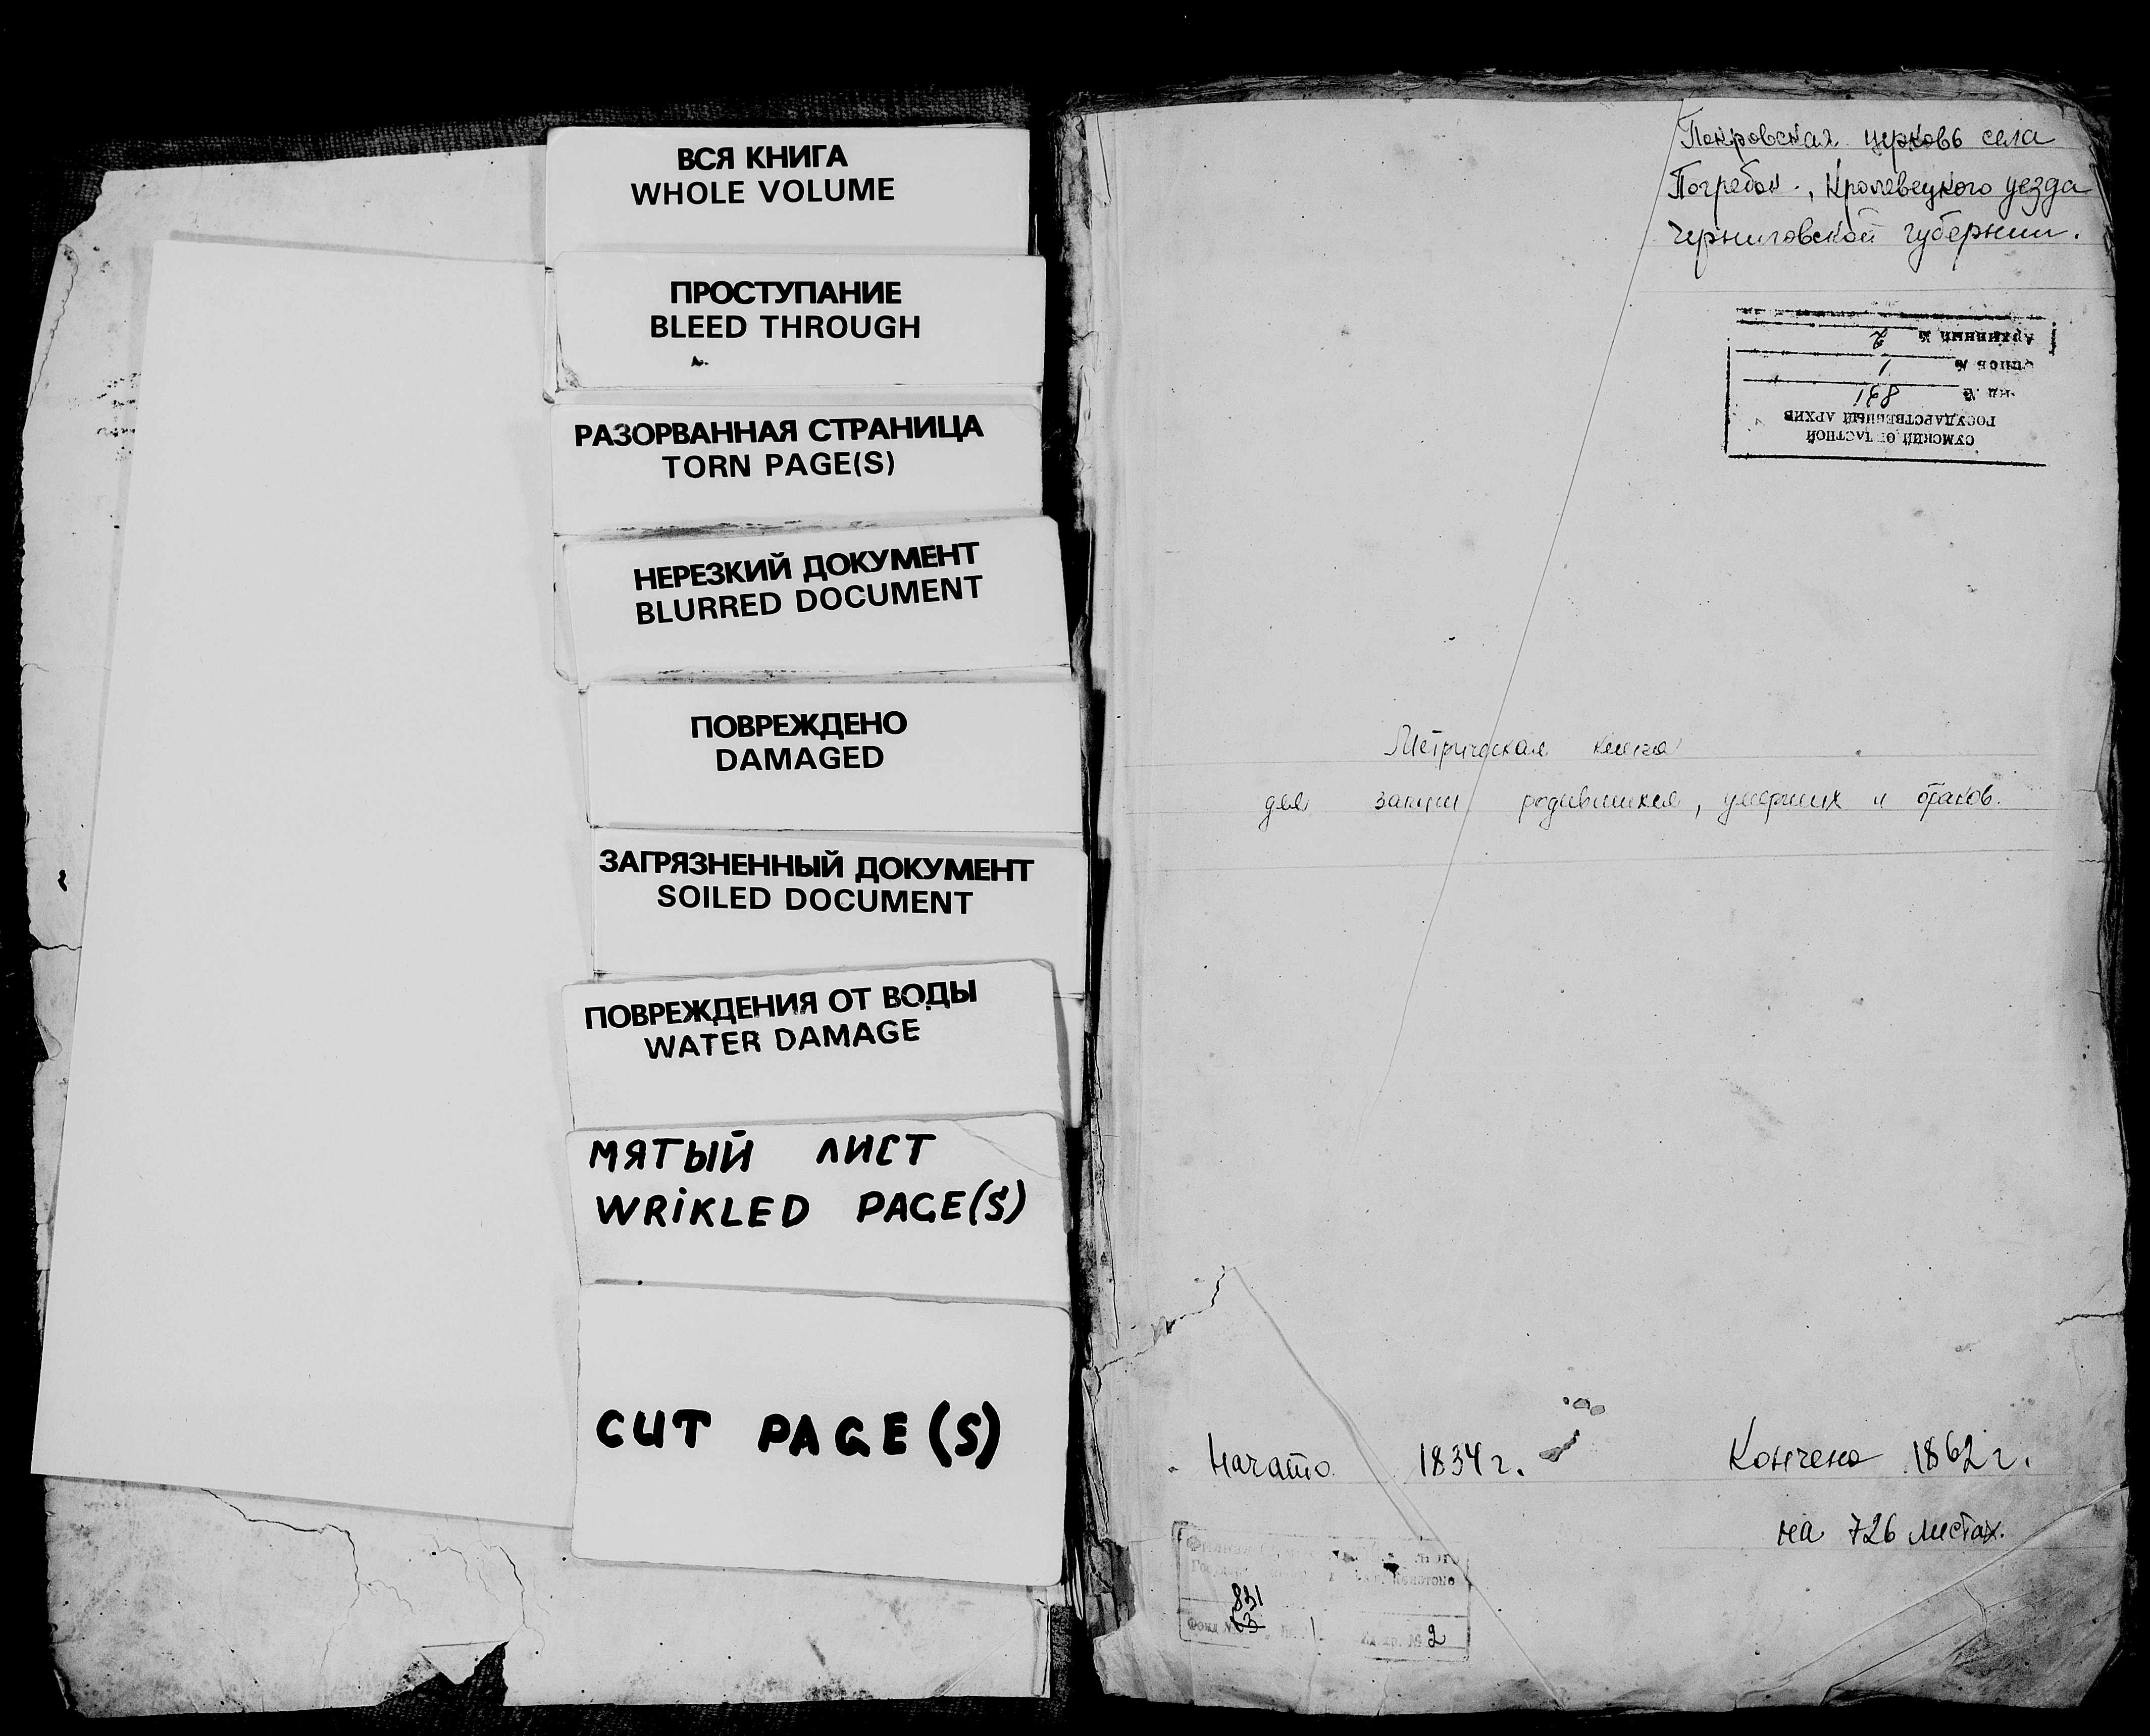 ВСЯ КНИГА
WHOLE VOLUME
ПРОСТУПАНИЕ
BLEED THROUGH
РАЗОРВАННАЯ СТРАНИЦА
TORN PAGE(S)
НЕРЕЗКИЙ ДОКУМЕНТ
BLURRED DOCUMENT
ПОВРЕЖДЕНО
DAMAGED
ЗАГРЯЗНЕННЫЙ ДОКУМЕНТ
SOILED DOCUMENT
ПОВРЕЖДЕНИЯ ОТ ВОДЫ
WATER DAMAGE
МЯТЫЙ ЛИСТ
WRIKLED PAGE(S)
CUT PAGE(S)
Покровская церковь села
Погребок, Кролевецкого уезда
Черниговской губернии.
СУМСКИЙ ОБЛАСТНОЙ
ГОСУДАРСТВЕННЫЙ АРХИВ
831
1
Архивный № 2
Метрическая книга
для записи родившихся, умерших и браков.
Начато 1834 г. Кончено 1862 г.
на 726 листах.
831
Фонд № 63 1 № 2